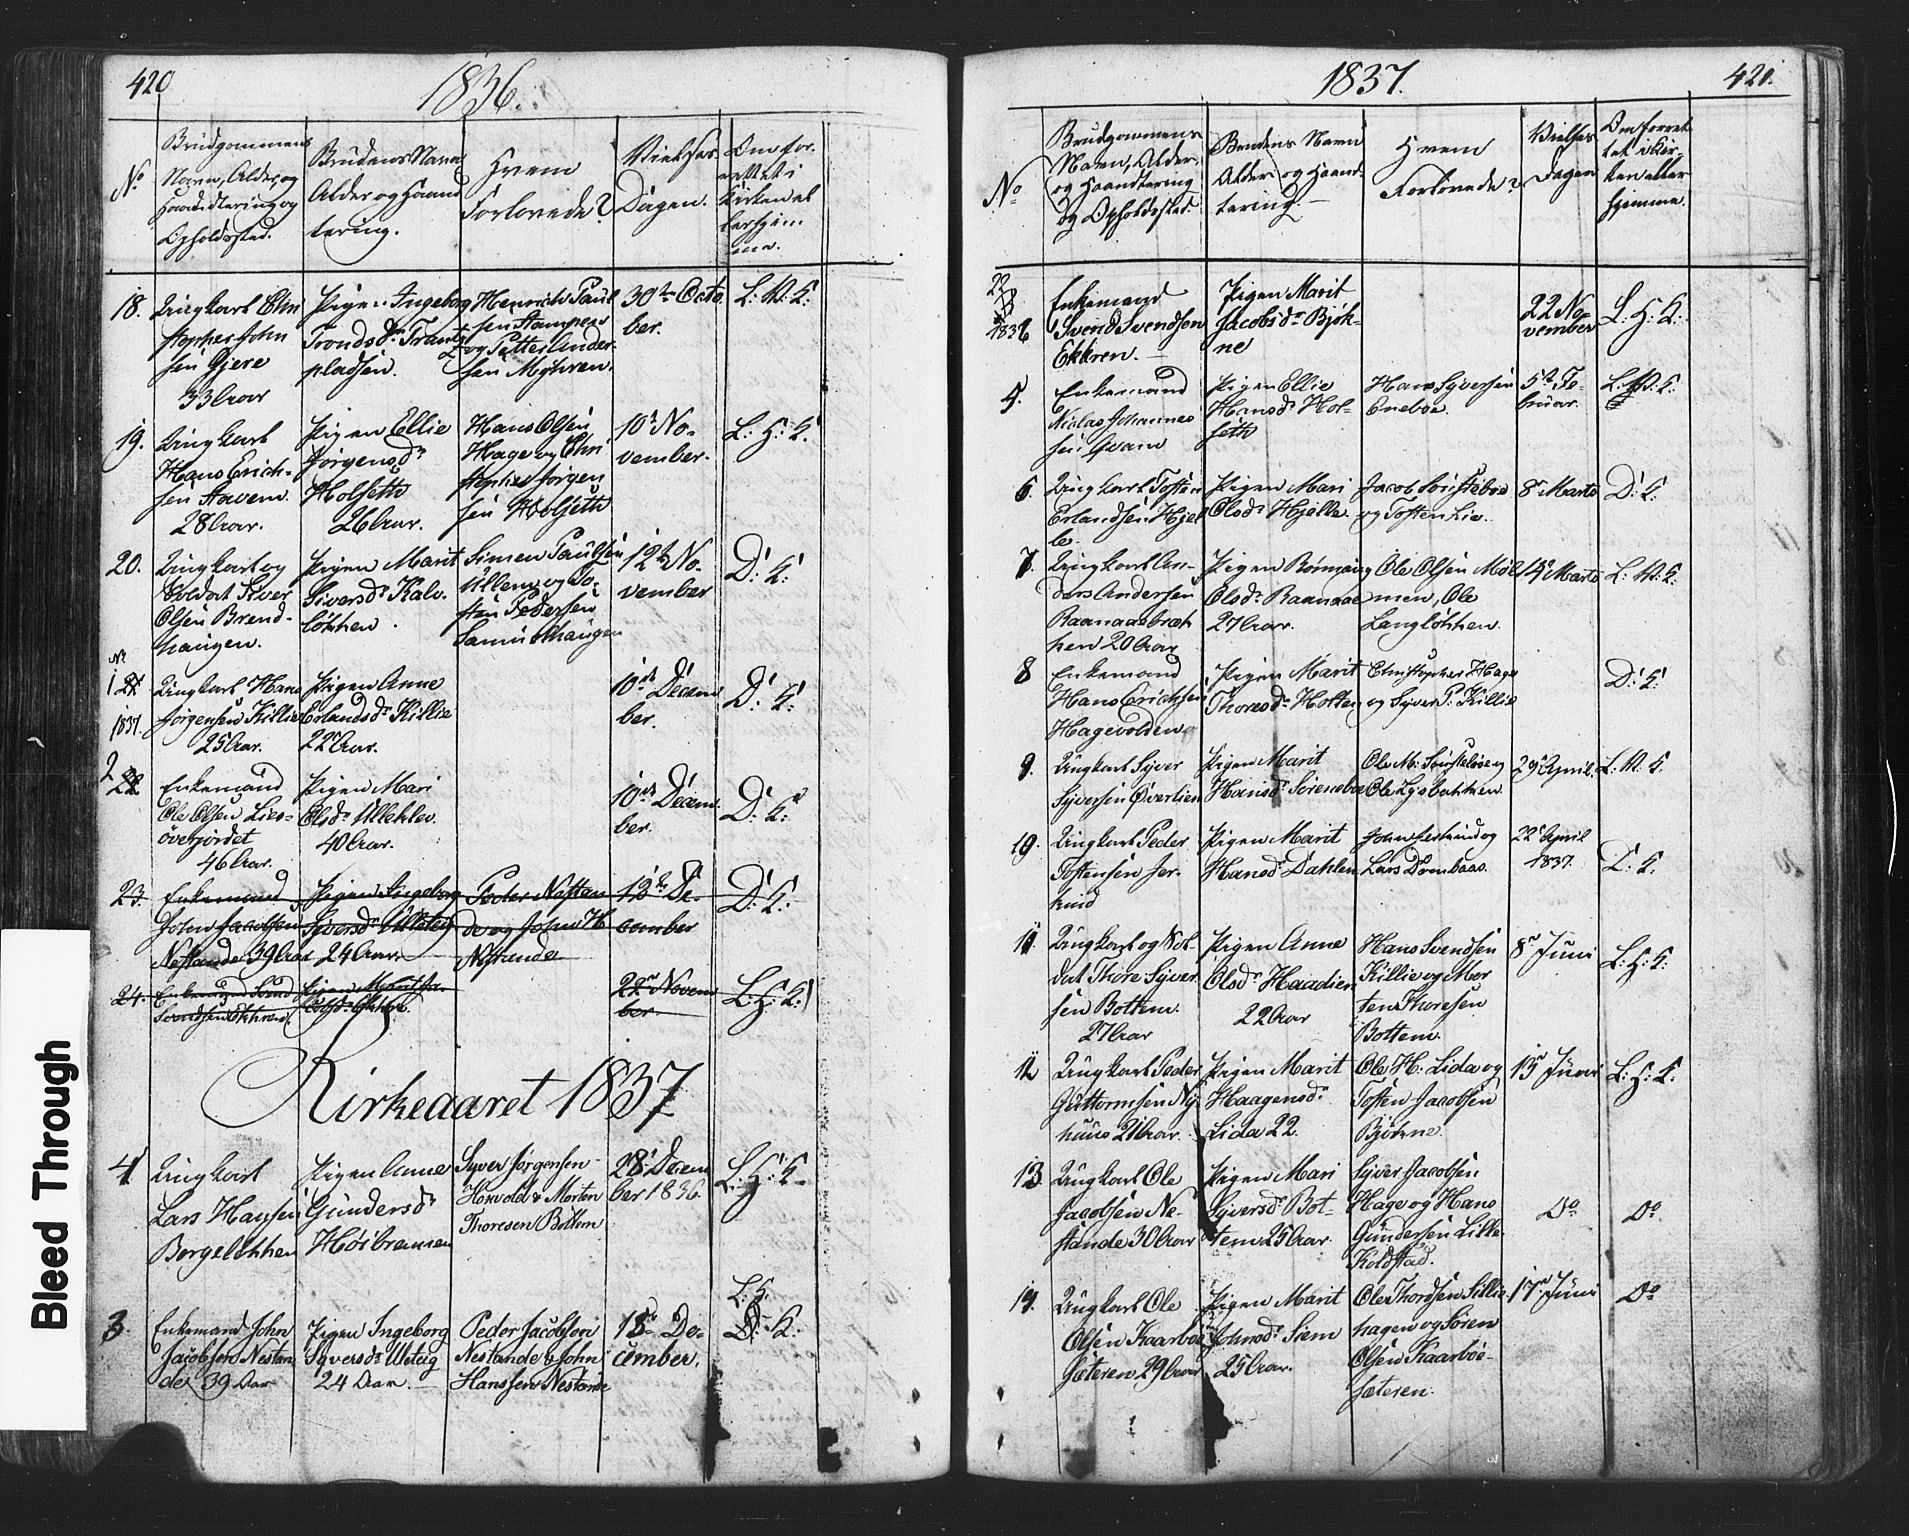 420
1836.
No
Brudgommens
Navn, Alder, og
Haandtering og
Opholdssted.
Brudens Navn
Alder og Haand
tering.
Hvem
Forlovede?
Vielses
Dagen.
Om for-
rettet i
Kirken el
ler hjem
me.
18.
Ungkarl Chri
stopher John
sen Gjere
33 Aar
Pigen Ingeborg
Tronds dr
pladsen.
Henrich Paul
sen Stampen
og Petter Ander-
sen Myhren.
30te Octo
ber.
L: K:
19.
Ungkarl
Hans Erich-
sen Stavem.
28 Aar.
Pigen Ellie
Jörgensdr
Holseth
26 Aar.
Hans Olsen
Hage og Chri
stopher Jörgen
sen Holseth
10de No-
vember.
L: H: K:
20.
Ungkarl og
Soldat Siver
Olsen Brend-
haugen.
Pigen Marit
Siversdr Kalv-
lökken.
Simen Paulsen
Ullern og To-
sten Pedersen
Samuelhaugen
12te No-
vember
D: K:
No
1
1837.
Ungkarl Hans
Jörgensen Killie
25 Aar.
Pigen Anne
Erlandsdr Killie
22 Aar.
10de Decem
ber.
D: K:
2
22
Enkemand
Ole Olsen Lies-
överjordet
46 Aar.
Pigen Mari
Olsdr Ulleklev.
40 Aar.
10de Decem
ber.
D: K:
23.
Enkemand
John Jacobsen
Nestande 39 Aar
Pigen Ingeborg
Syversdr
24 Aar.
Peder Nestan
de og John H
Nestande
12te De-
cember
D: K:
24.
Enkemand Svend
Svendsen Ekkren.
Pigen Marit
22de Novem
ber.
L: H: K:
Kirkeaaret 1837
4
Ungkarl
Lars Hansen
Borgelökken
Pigen Anne
Gundersdr
Höibrænnen
Syver Jörgensen
& Morten
Thoresen Bottem
28de Decem
ber 1836.
L: H: K.
3.
Enkemand John
Jacobsen Nestan
de, 39 Aar
Pigen Ingeborg
Syversdr Uteig
24 Aar.
Peder Jacobsen
Nestande & John
Hanssen Nestande
De-
cember.
L: H:
K:
1837.
421.
No
Brudgommens
Navn, Alder,
og Haandtering
og Opholdssted.
Brudens Navn
Alder og Haand-
tering.
Hvem
Forlovede?
Vielses
Dagen
Om forret-
tet i Kir-
ken eller
hjemme.
22
1836
Enkemand
Svend Svendsen
Ekkren.
Pigen Marit
Jacobsdr Björk-
ne
22 No-
vember
L: H: K:
5.
Enkemand
Niclas Johannes
sen Qvam
Pigen Ellie
Hansdr Hol-
seth
Hans Syversen
Eneboe.
5te Fe-
bruar.
L: K:
6.
Ungkarl Tosten
Erlandsen Hjel
le.
Pigen Mari
Olsdr Hjelle.
Jacob
og Tosten Lie.
8de Marts
D: K:
7.
Ungkarl An-
ders Andersen
Raanaasbræk
ken 20 Aar
Pigen Rönnaug
Olsdr Raanaae
27 Aar.
Ole Olsen Möl
men, Ole
Langlökken.
14de Marts
L: K:
8
Enkemand
Hans Erichsen
Hagevolden
Pigen Marit
Thoresdr Holten
Christopher Hage
og Syver P. Killie
D: K:
9.
Ungkarl Syver
Syversen Överlien
Pigen Marit
Hansdr Söreneboe
Ole M:
29de April.
L: K:
10.
Ungkarl Peder
Tostensen Jer-
kind
Pigen Marit
Hansdr Dahlen
John Jerkind og
Lars Dombaas.
22de April
1837.
D: K.
11
Ungkarl og Sol-
dat Thore Syver
sen Bottem.
27 Aar
Pigen Anne
Olsdr Haadien
22 Aar
Hans Svendsen
Killie og Mor
ten Thoresen
Bottem.
8de Juni
L: H: K:
12
Ungkarl Peder
Guttormsen Ny
huus 21 Aar.
Pigen Marit
Haagensdr
Lida 22.
Ole H. Lida og
Tosten Jacobsen
Björkne.
15de Juni
L: H: K:
13
Ungkarl Ole
Jacobsen Ne-
stande 30 Aar
Pigen Mari
Syversdr Bot-
tem 25 Aar.
Syver Jacobsen
Hage og Hans
Gundersen Lille
Koldstad.
Do
Do
14.
Ungkarl Ole
Olsen Kaarboe
sæteren, 29 Aar
Pigen Marit
Johnsdr Siem
25 Aar.
Ole Thordsen Lillie
hagen og Sören
Olsen Kaarböe-
sæteren.
17de Juni
Do
Bleed Through